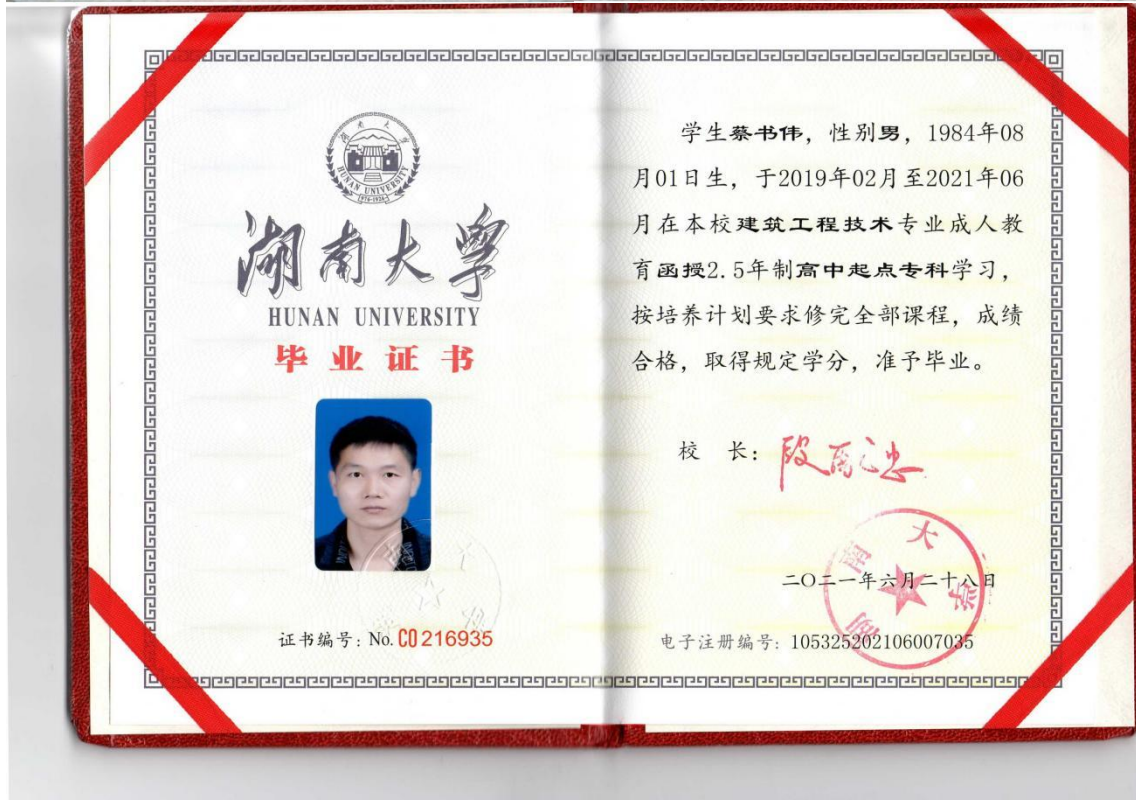 湖南大学
HUNAN UNIVERSITY
1976-1926
湖南大学
HUNAN UNIVERSITY
毕业证书
证书编号：No. CO216935
学生蔡书伟，性别男，1984年08
月01日生，于2019年02月至2021年06
月在本校建筑工程技术专业成人教
育函授2.5年制高中起点专科学习，
按培养计划要求修完全部课程，成绩
合格，取得规定学分，准予毕业。
校 长：段献忠
湖南大学
二〇二一年六月二十八日
电子注册编号：105325202106007035